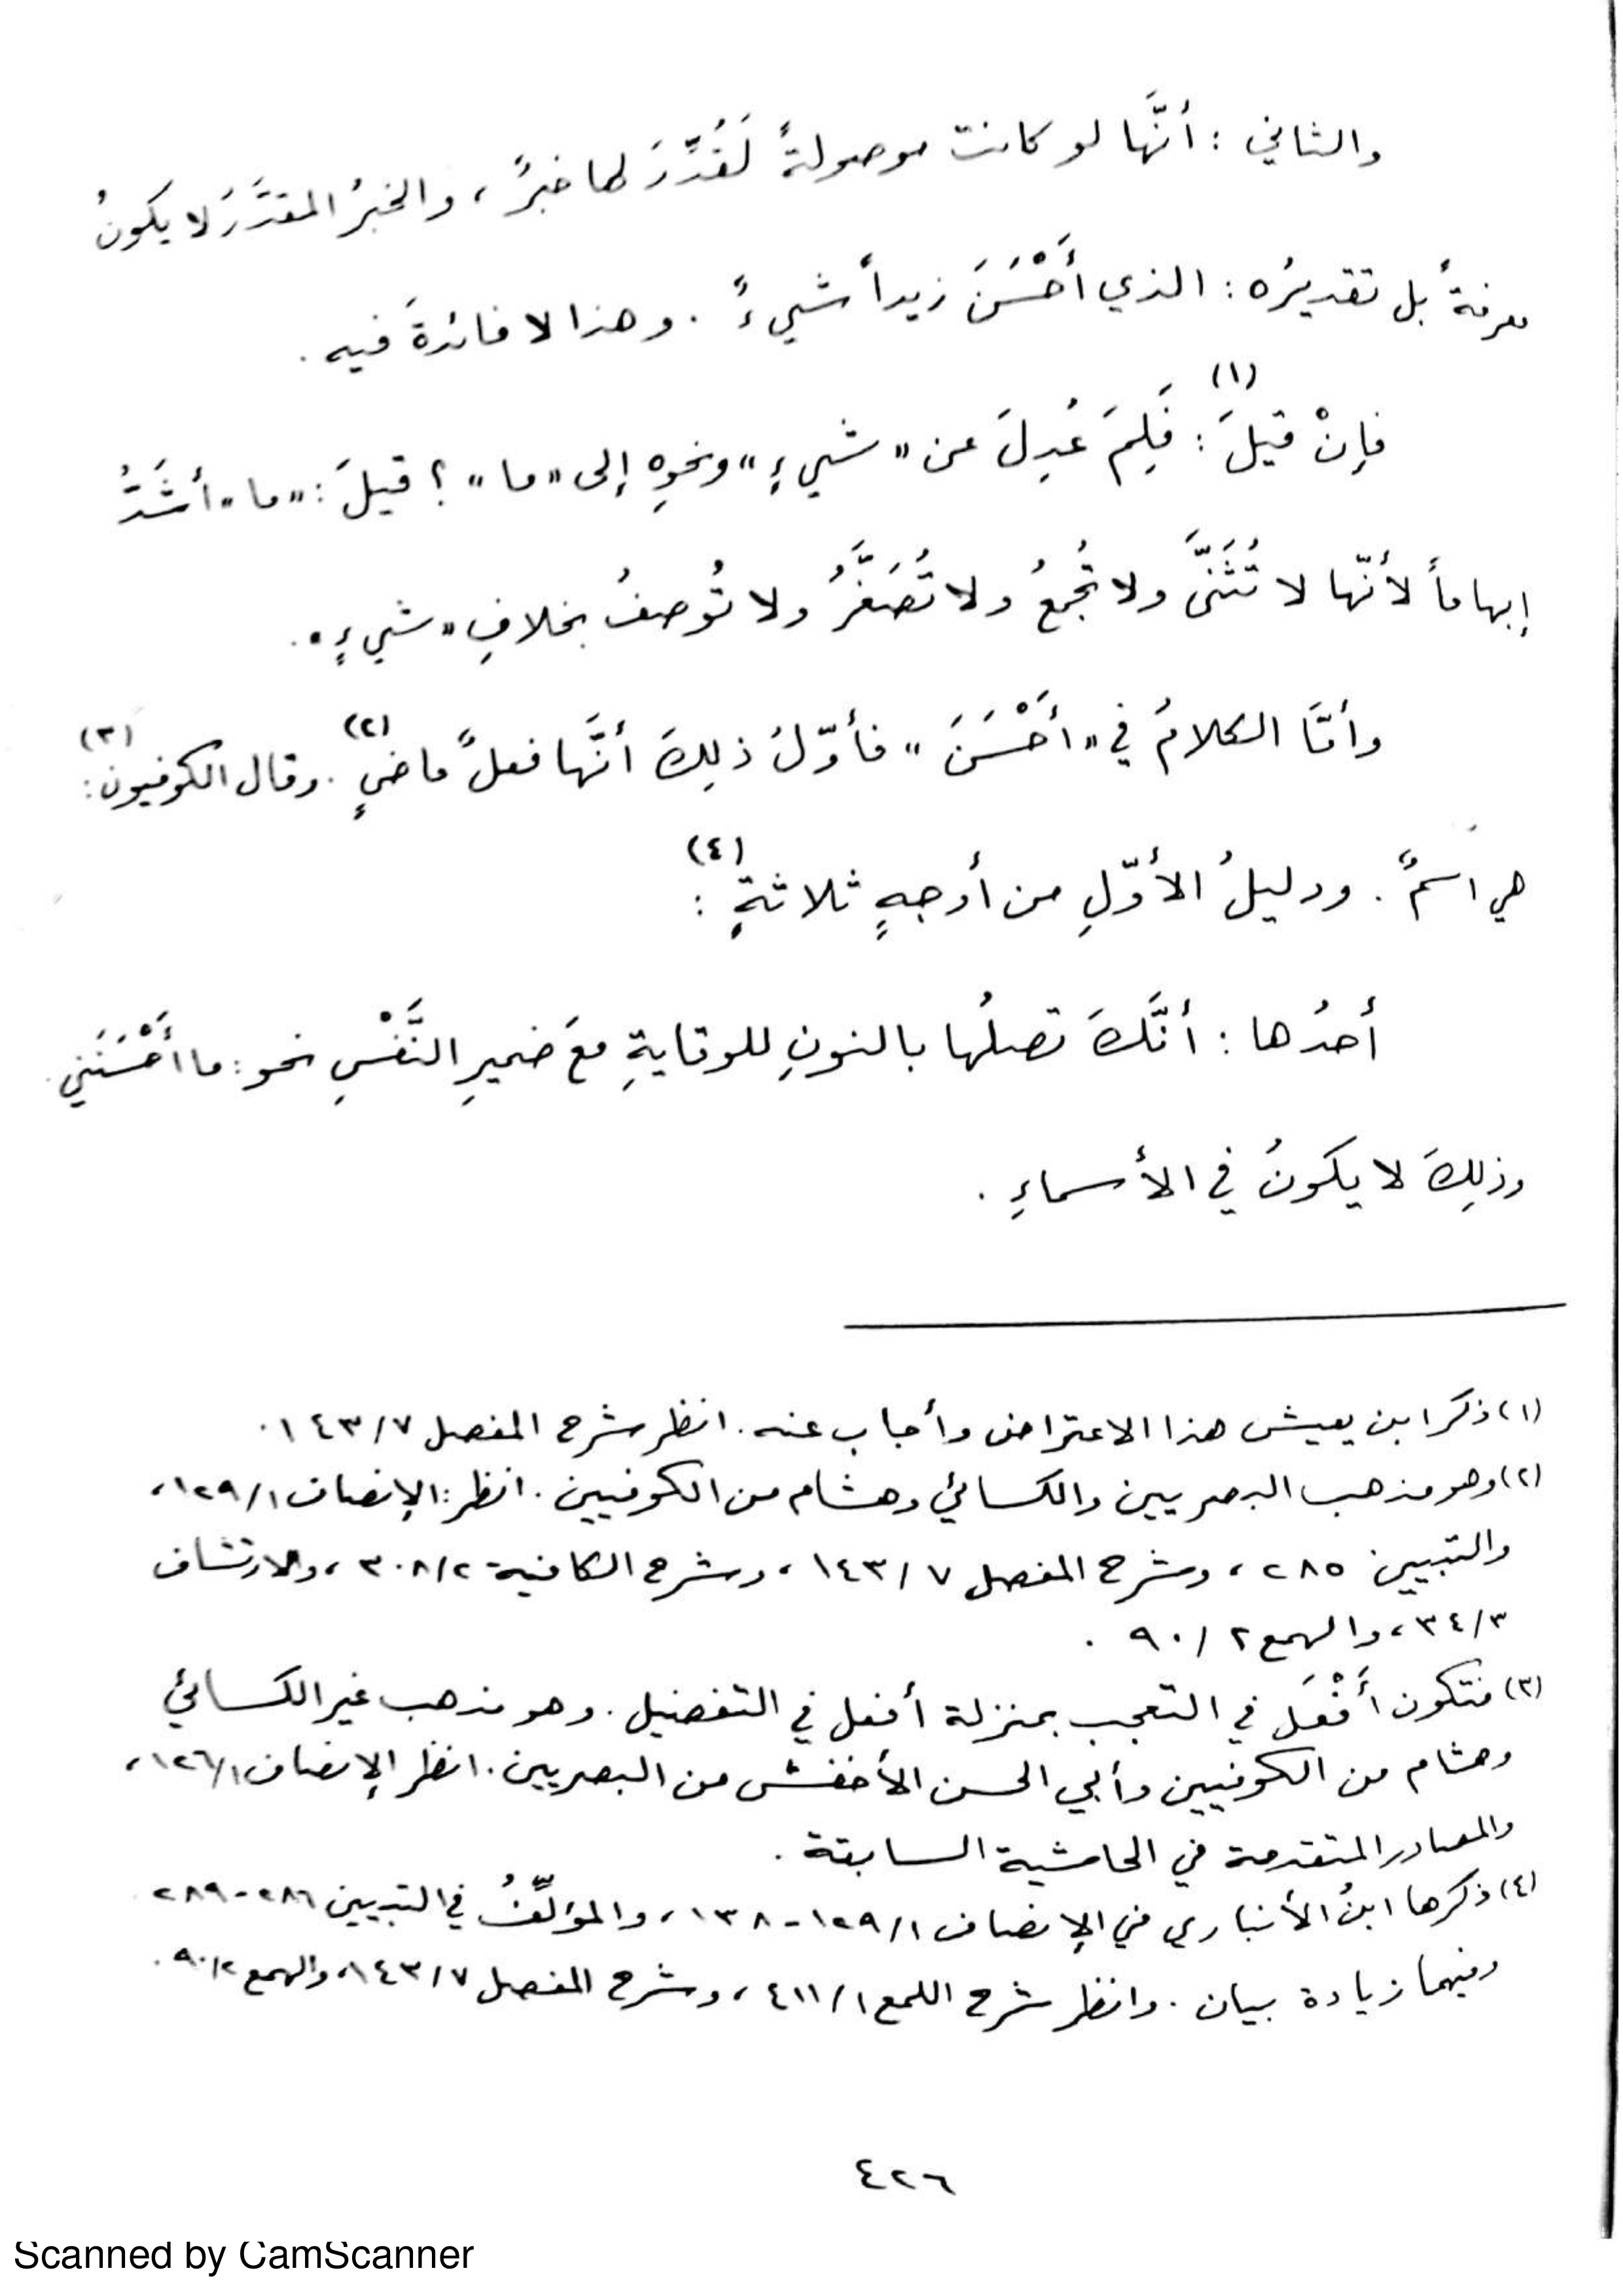 والثاني : أنَّها لو كانت موصولةً لَقُدِّرَ لها خبرٌ ، والخبرُ المقدَّرُ لا يكونُ
معرفةً بل تقديرُه : الذي أَحْسَنَ زيداً شيءٌ . وهذا لا فائدةَ فيه .
فإنْ قيلَ (١) : فَلِمَ عُدِلَ عن « شيءٍ » ونحوِهِ إلى « ما » ؟ قيلَ : « ما » أشَدُّ
إبهاماً لأنّها لا تُثَنَّى ولا تُجمعُ ولا تُصَغَّرُ ولا تُوصفُ بخلافِ « شيءٍ » .
وأمَّا الكلامُ في « أَحْسَنَ » فأوّلُ ذلِكَ أنَّها فعلٌ ماضيٍ (٢) . وقال الكوفيون (٣) :
هي اسمٌ . ودليلُ الأوّلِ من أوجهٍ ثلاثةٍ (٤) :
أحدُها : أنَّكَ تصلُها بالنونِ للوقايةِ معَ ضميرِ النَّفْسِ نحو : ما أَحْسَنَني
وذلِكَ لا يكونُ في الأسماءِ .
(١) ذكر ابن يعيش هذا الاعتراض وأجاب عنه . انظر شرح المفصل ٧/ ١٤٣ .
(٢) وهو مذهب البصريين والكسائي وهشام من الكوفيين . انظر : الإنصاف ١/ ١٢٩ ،
والتبيين ٢٨٥ ، وشرح المفصل ٧/ ١٤٣ ، وشرح الكافية ٢/ ٣٠٨ ، والارتشاف
٣/ ٣٤ ، والهمع ٢/ ٩٠ .
(٣) فتكون أَفْعَل في التعجب بمنزلة أفعل في التفضيل . وهو مذهب غير الكسائي
وهشام من الكوفيين وأبي الحسن الأخفش من البصريين . انظر الإنصاف ١/ ١٢٦ ،
والمصادر المتقدمة في الحاشية السابقة .
(٤) ذكرها ابنُ الأنباري في الإنصاف ١/ ١٢٩ - ١٣٨ ، والمؤلِّفُ في التبيين ٢٨٦ - ٢٨٩
وفيهما زيادة بيان . وانظر شرح اللمع ١/ ٤١١ ، وشرح المفصل ٧/ ١٤٣ ، والهمع ٢/ ٩٠ .
٤٢٦
Scanned by CamScanner